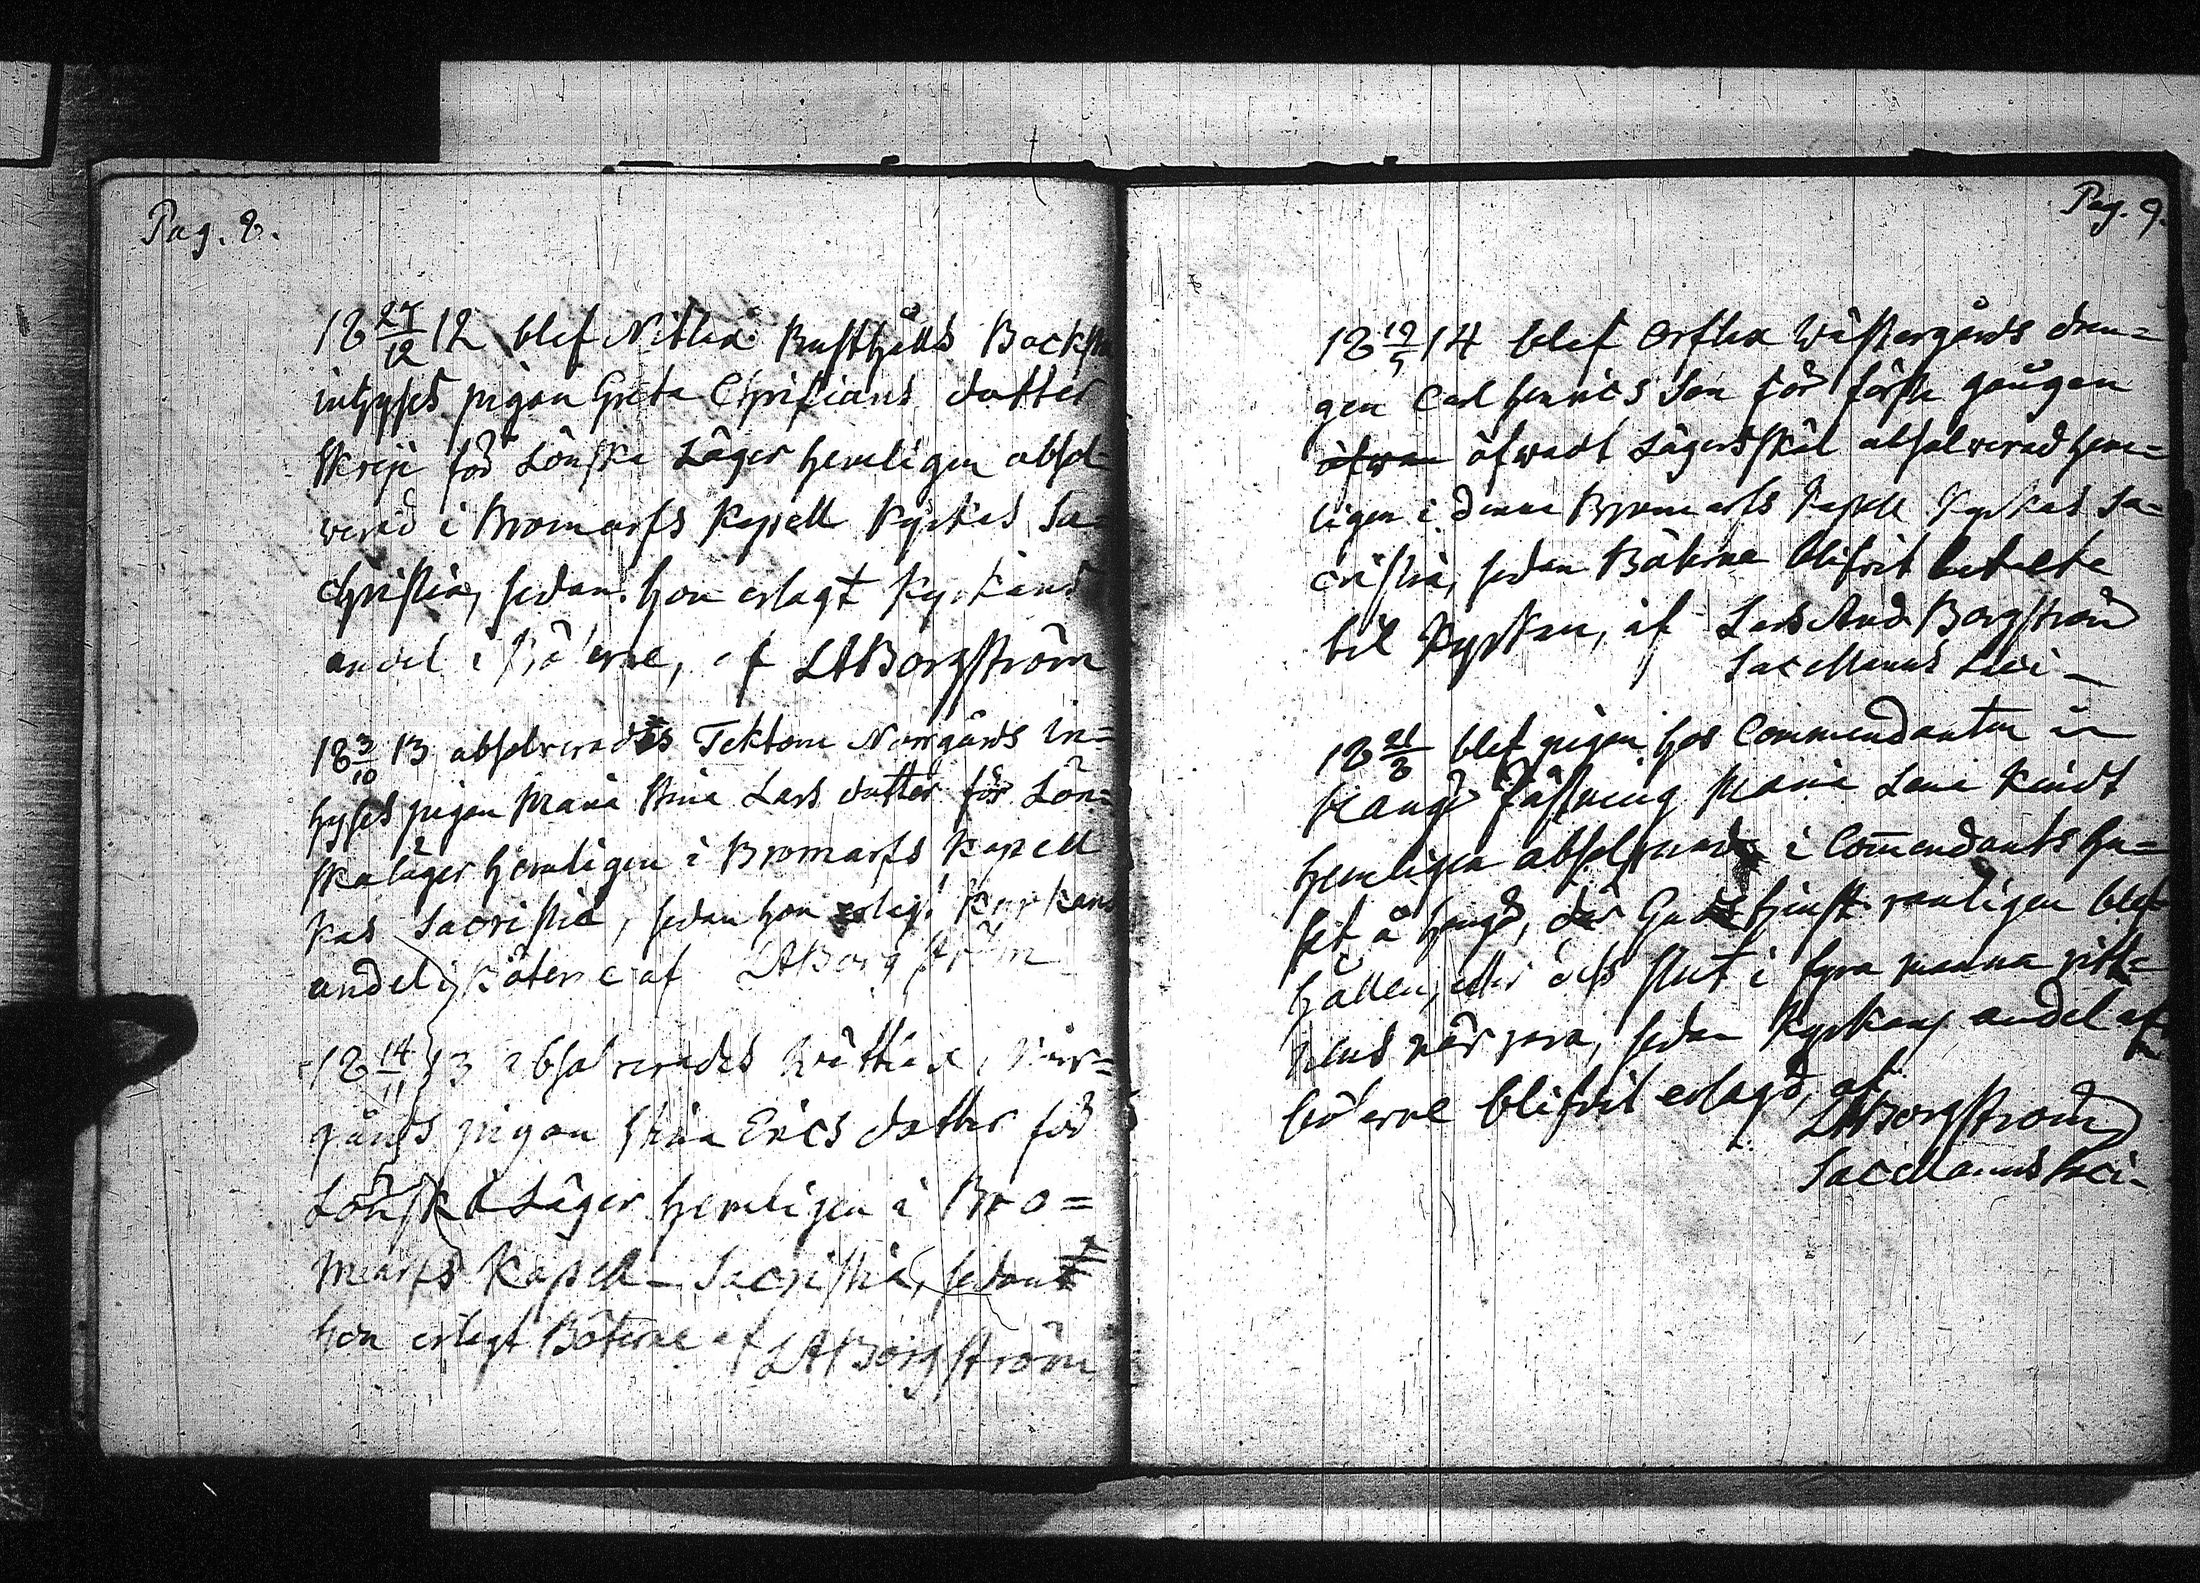 Pag. 8.
18 27/12 12 blef Nitlax Rusthålls Back
inhyses pigan Greta Christians dotter
för Lönska Läger hemligen absol-
verad i Bromarfs Kapell Kyrkas Sa-
christia, sedan hon erlagt Kyrkans
andel i Böterne, af LABorgström
18 3/10 13 absolverades Tektom Norrgårds in-
hyses pigan Maria Stina Lars dotter för Lön-
skaläger hemligen i Bromarfs Kapell
kas Sacristia, sedan hon erlagt Kyrkans
andel i Böterne af LABorgström
18 14/11 13 absolverades Wättlax Norr-
gårds pigan Stina Erics dotter för
Lönska Läger hemligen i Bro=
marfs Kapell Sacristia, sedan
hon erlagt Böterne af LABorgström
Pag. 9.
18 19/5 14 blef Orslax Wästergårds drän=
gen Carl Henrics Son för förste gången
öfwan öfwadt Lägersmål absolverad hem=
ligen i denna Bromarfs Kapell Kyrkas Sa=
cristia, sedan Böterne blifvit betalte
til Kyrkan, af Lars And Borgström
Sacellanus Loci
18 21/8 blef pigan hos Commendanten
Hangö Fästning Maria Lena
hemligen absolverad i Com̄endants hu=
set å Hangö, där Gudstjenst vanligen blef
hållen, efter dess slut i fyra manna witt=
nens när vara, sedan Kyrkans andel af
böterne blifvit erlagd, af
LABorgström
Sacellanus Loci